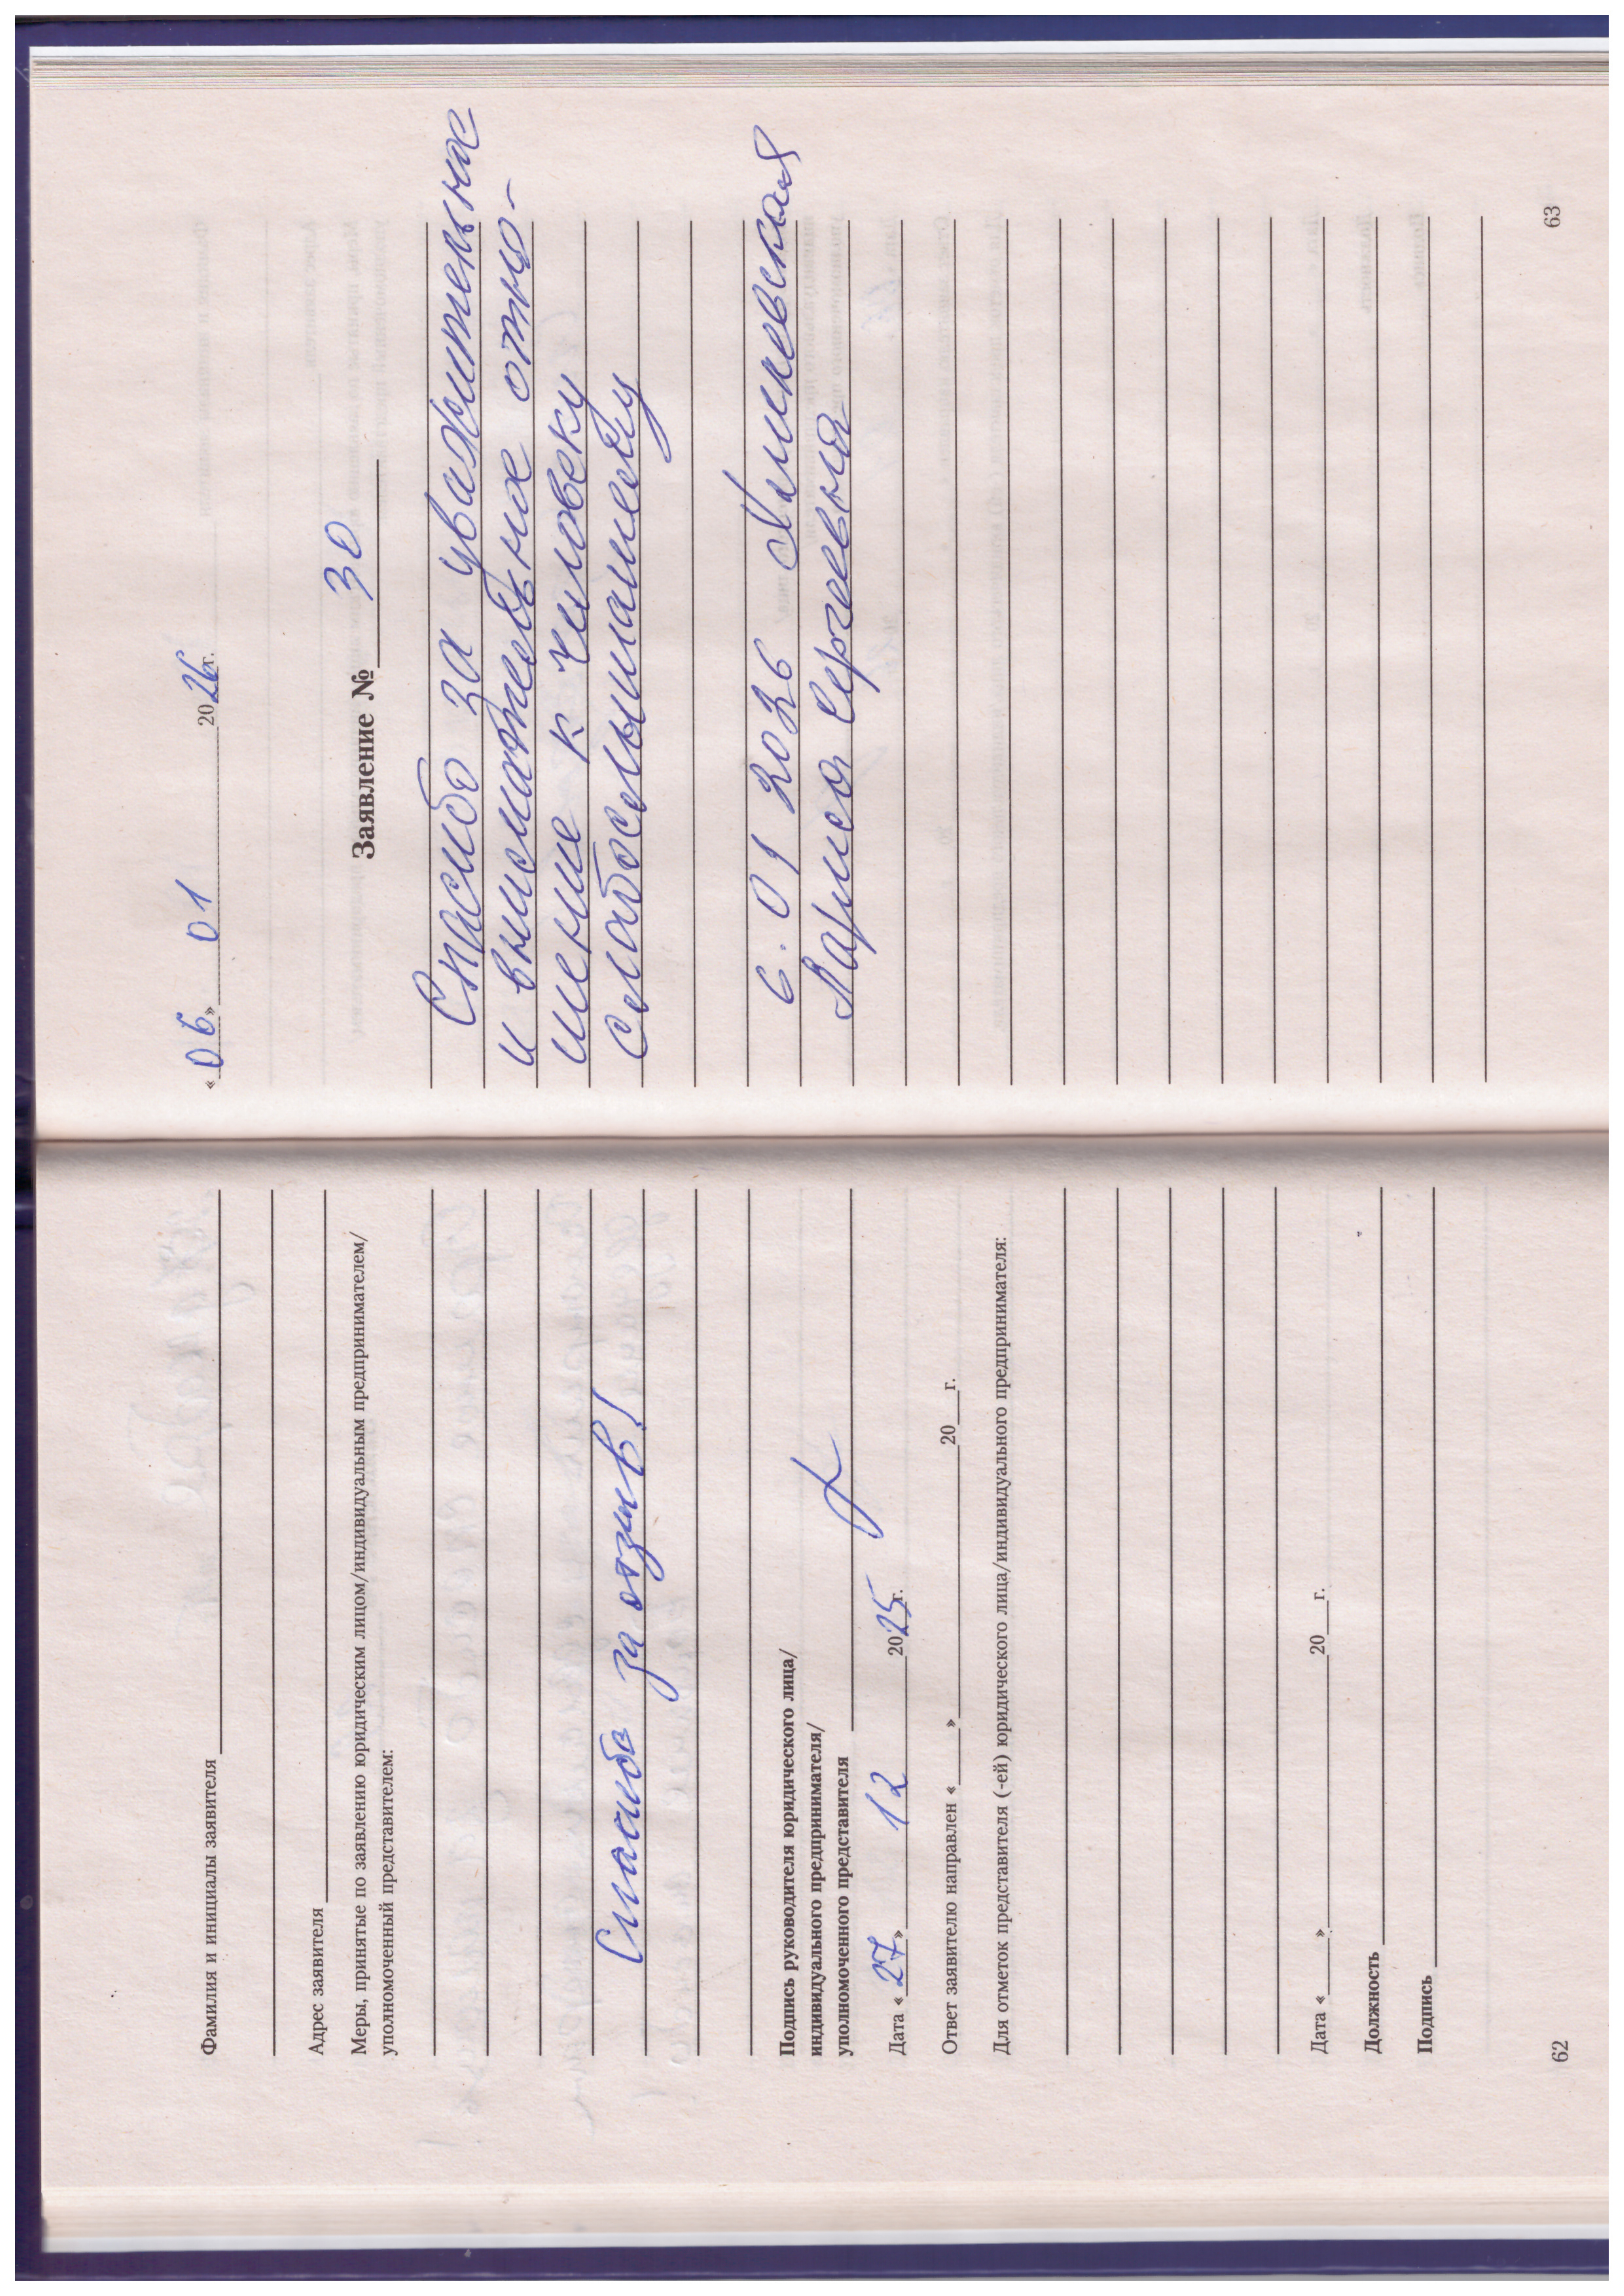 Фамилия и инициалы заявителя
Адрес заявителя
Меры, принятые по заявлению юридическим лицом/индивидуальным предпринимателем/
уполномоченный представителем:
Спасибо за отзыв!
Подпись руководителя юридического лица/
индивидуального предпринимателя/
уполномоченного представителя
Дата «27» 12 2025г.
Ответ заявителю направлен «___» 20__г.
Для отметок представителя (-ей) юридического лица/индивидуального предпринимателя:
Дата «___» 20__г.
Должность
Подпись
62
«06» 01 2026г.
Заявление № 30
Спасибо за уважительное
и внимательное отно-
шение к человеку
слабослышащему
6.01 2026
Лариса Сергеевна
63